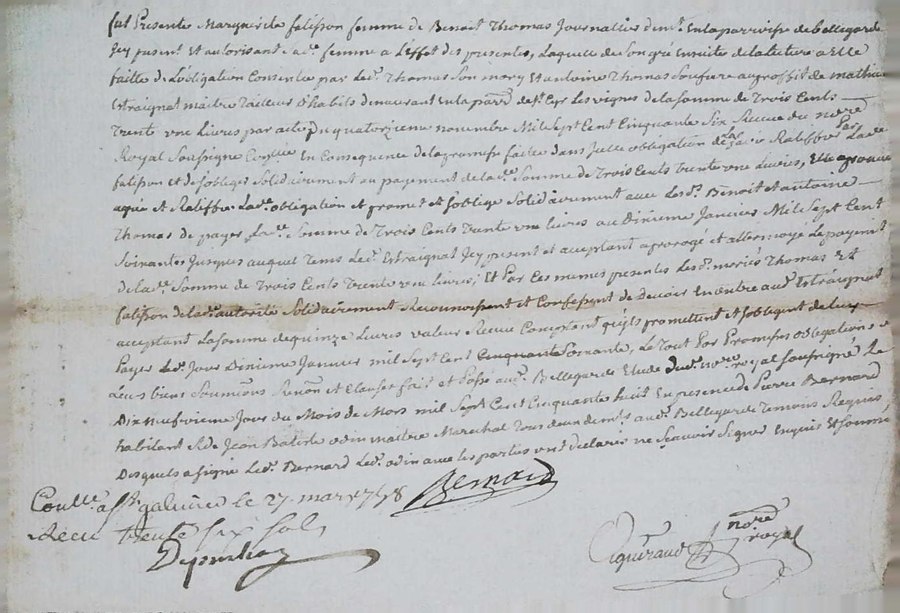 fut Presente Marguerite falisson femme de Benoit Thomas Journallier demt. En la parroisse de bellegarde
Icy present Et autorisant Lade. femme a L'effet des presentes, Laquelle de son gré Ensuite de la lecture a Elle
faitte de L'obligation Consentie par Led. Thomas son mary Et antoine Thomas Son frere au proffit de mathieu
Estraignat maitre Tailleur d'habits demeurant En la parre. de st. Cyr Les vignes de la somme de Trois Cents
Trente une Livres par acte Du quatorzieme novembre Mil Sept Cent Cinquante Six Receue du nore.
Royal Soussigné En Consequence de la promesse faitte dans Icelle obligation de la faire Ratiffier Par Lade.
falisson et de s'obliger Solidairement au payement de lade. Somme de Trois Cents Trente une Livres, Elle aprouve
et Ratiffie Lade. obligation et promet et s'oblige Solidairement avec Lesd. Benoit et antoine
Thomas de payer Lade. Somme de Trois Cents Trente une livres au Dixieme Janvier Mil Sept Cent
Soixantes Jusques auquel Tems Led. Estraignat Icy present et acceptant a prorogé et Le payemt.
de lade. Somme de Trois Cents Trente une livres; Et Par Ces memes presentes Lesd. mariés Thomas Et
falisson de lad. autorité Solidairement Reconnoissent et Confessent de devoir En outre aud. Estraignat
acceptant La somme de quinze Livres valeur Receue Comptant qu'ils promettent et s'obligent de luy
Payer Led. Jour Dixieme Janvier mil Sept Cent Cinquante Soixante, Le Tout Par Promesses obligations de
Leurs biens Soumions. Renon. et Clauses fait et Passé aud. Bellegarde Etude dud. nore. royal soussigné Le
Dix neufvieme Jour du Mois de Mars mil Sept Cent Cinquante huit En presence de Pierre Bernard
habitant Et de Jean Batiste odin maitre Marechal Tous deux demts. aud. Bellegarde Temoins Requis,
Desquels a signé Led. Bernard Led. odin avec les parties ont declaré ne Scavoir Signer Enquis Et Sommé
Coulle. a st. galmier le 27. mars 1758
Recu trente six sols
Bernard
nore. royal